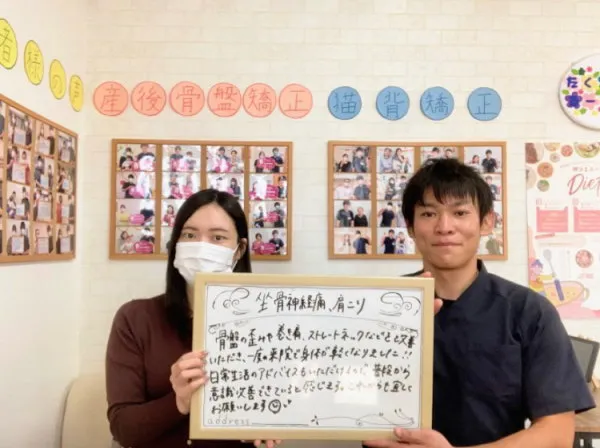 者様の声
産後骨盤矯正
猫背矯正
Diet
坐骨神経痛、肩こり
骨盤の歪みや巻き肩、ストレートネックなどを改善
いただき、一度の来院で身体が軽くなりました!!
日常生活のアドバイスもいただけるので、普段から
意識改善できていると感じます。これからも宜しく
お願いします
address